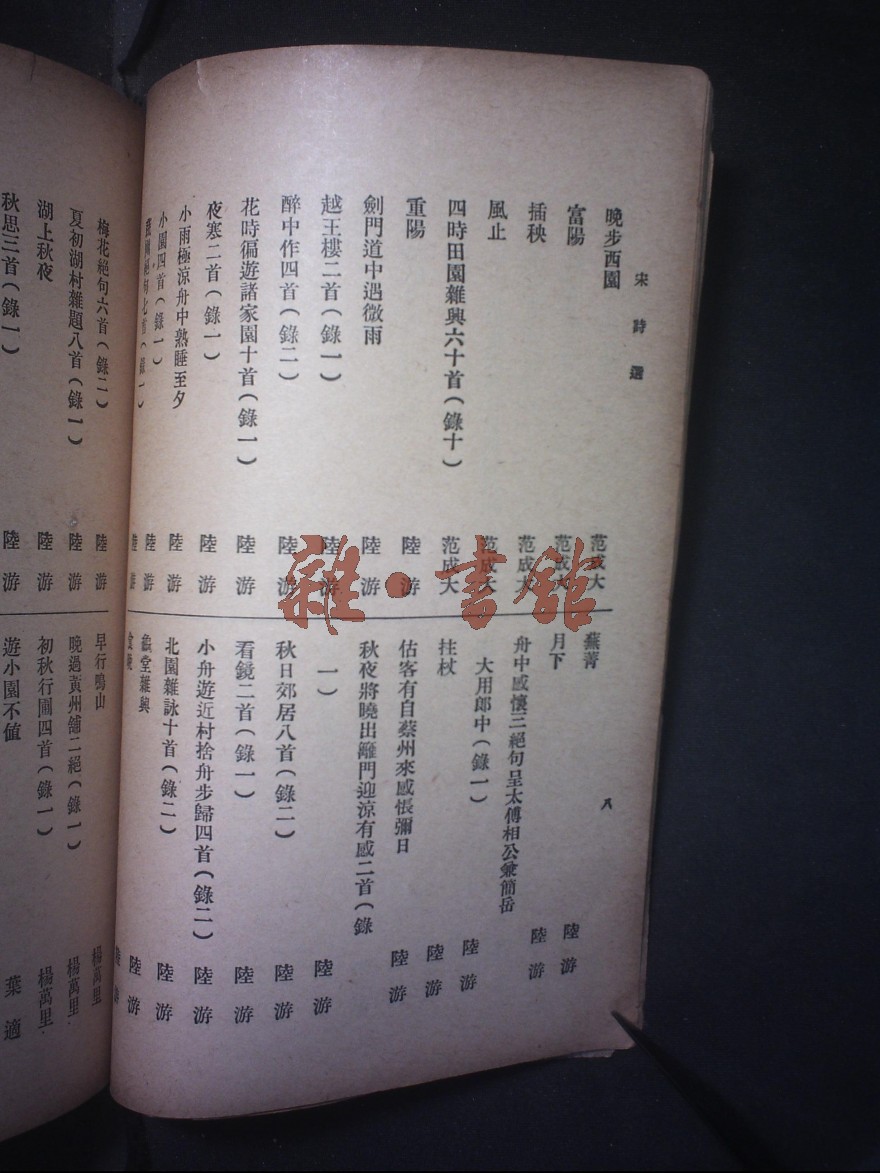 宋詩選
八
晚步西園 范成大
富陽 范成大
插秧 范成大
風止 范成大
四時田園雜興六十首（錄十） 范成大
重陽 陸游
劍門道中遇微雨 陸游
越王樓二首（錄一） 陸游
醉中作四首（錄二） 陸游
花時徧遊諸家園十首（錄一） 陸游
夜寒二首（錄一） 陸游
小雨極涼舟中熟睡至夕 陸游
小園四首（錄一） 陸游
蕪菁 陸游
月下 陸游
舟中感懷三絕句呈太傅相公兼簡岳
大用郎中（錄一） 陸游
拄杖 陸游
估客有自蔡州來感悵彌日 陸游
秋夜將曉出籬門迎涼有感二首（錄
一） 陸游
秋日郊居八首（錄二） 陸游
看鏡二首（錄一） 陸游
小舟遊近村捨舟步歸四首（錄二） 陸游
北園雜詠十首（錄二） 陸游
龜堂雜興 陸游
梅花絕句六首（錄二） 陸游
夏初湖村雜題八首（錄一） 陸游
湖上秋夜 陸游
秋思三首（錄一） 陸游
早行鳴山 楊萬里
晚過黃州舖二絕（錄一） 楊萬里
初秋行圃四首（錄一） 楊萬里
遊小園不值 葉適
雜·書館